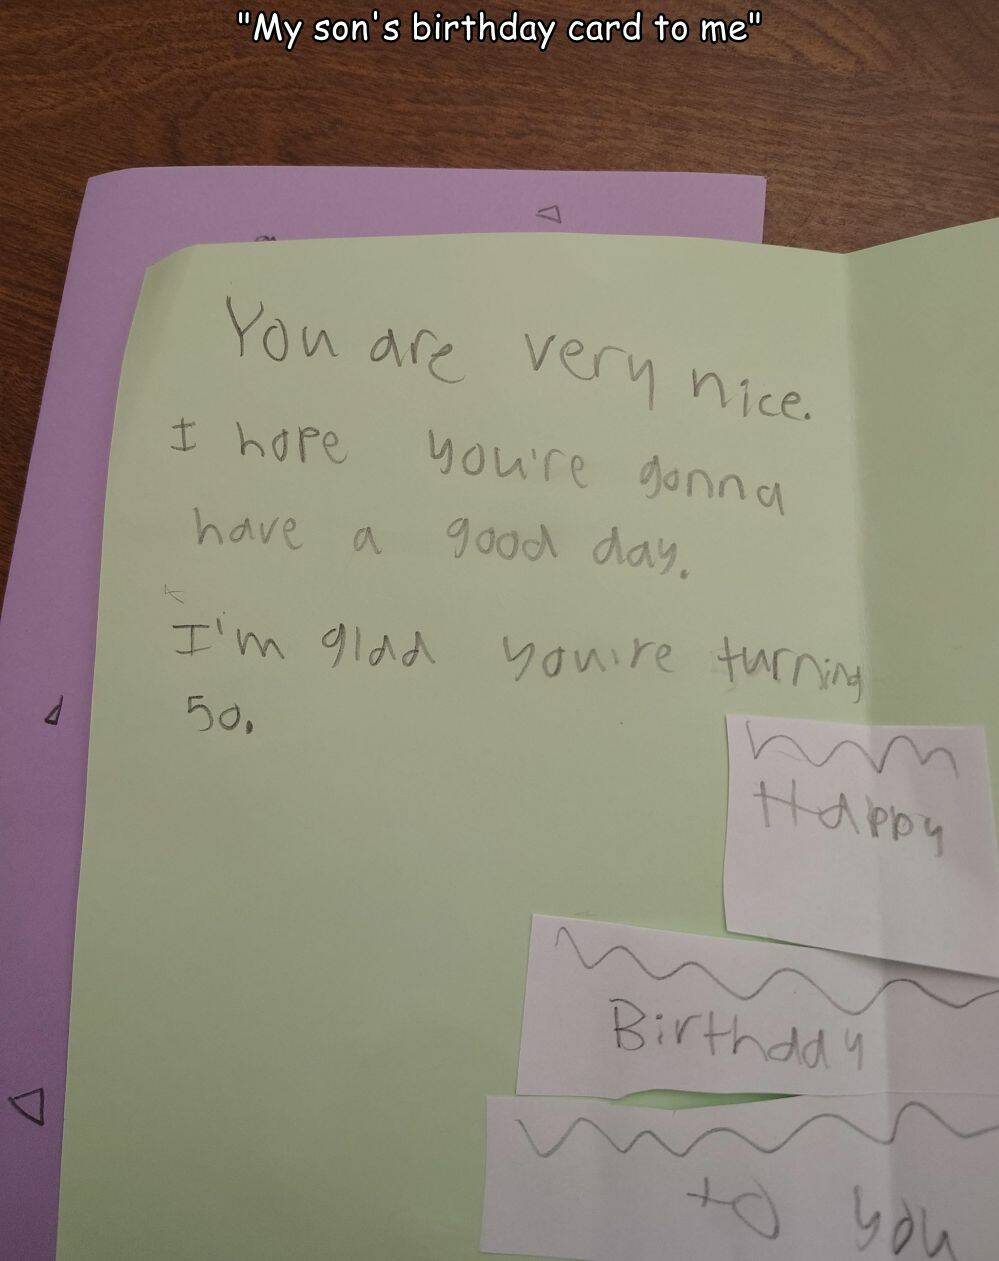 "My son's birthday card to me"
You are very nice.
I hope you're gonna
have a good day.
I'm glad you're turning
50.
Happy
Birthday
to you